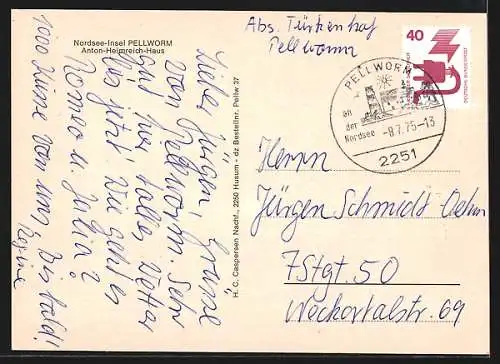 Nordsee-Insel PELLWORM
Anton-Heimreich-Haus
Liebe Jürgen! Grüsse
von Pellworm. Sehr
und hier tolles Wetter
bis jetzt! Wie geht es
Romeo u. Julia?
1000 Küsse von uns, bis bald!
Regine
H. C. Caspersen Nachf., 2250 Husum - dz Bestellnr. Pellw 37
Abs. Türkenhof
Pellworm
40
DEUTSCHE BUNDESPOST
PELLWORM
an
der
Nordsee
-8.7.75-13
2251
Herrn
Jürgen Schmidt Oehm
7 Stgt. 50
Neckartalstr. 69